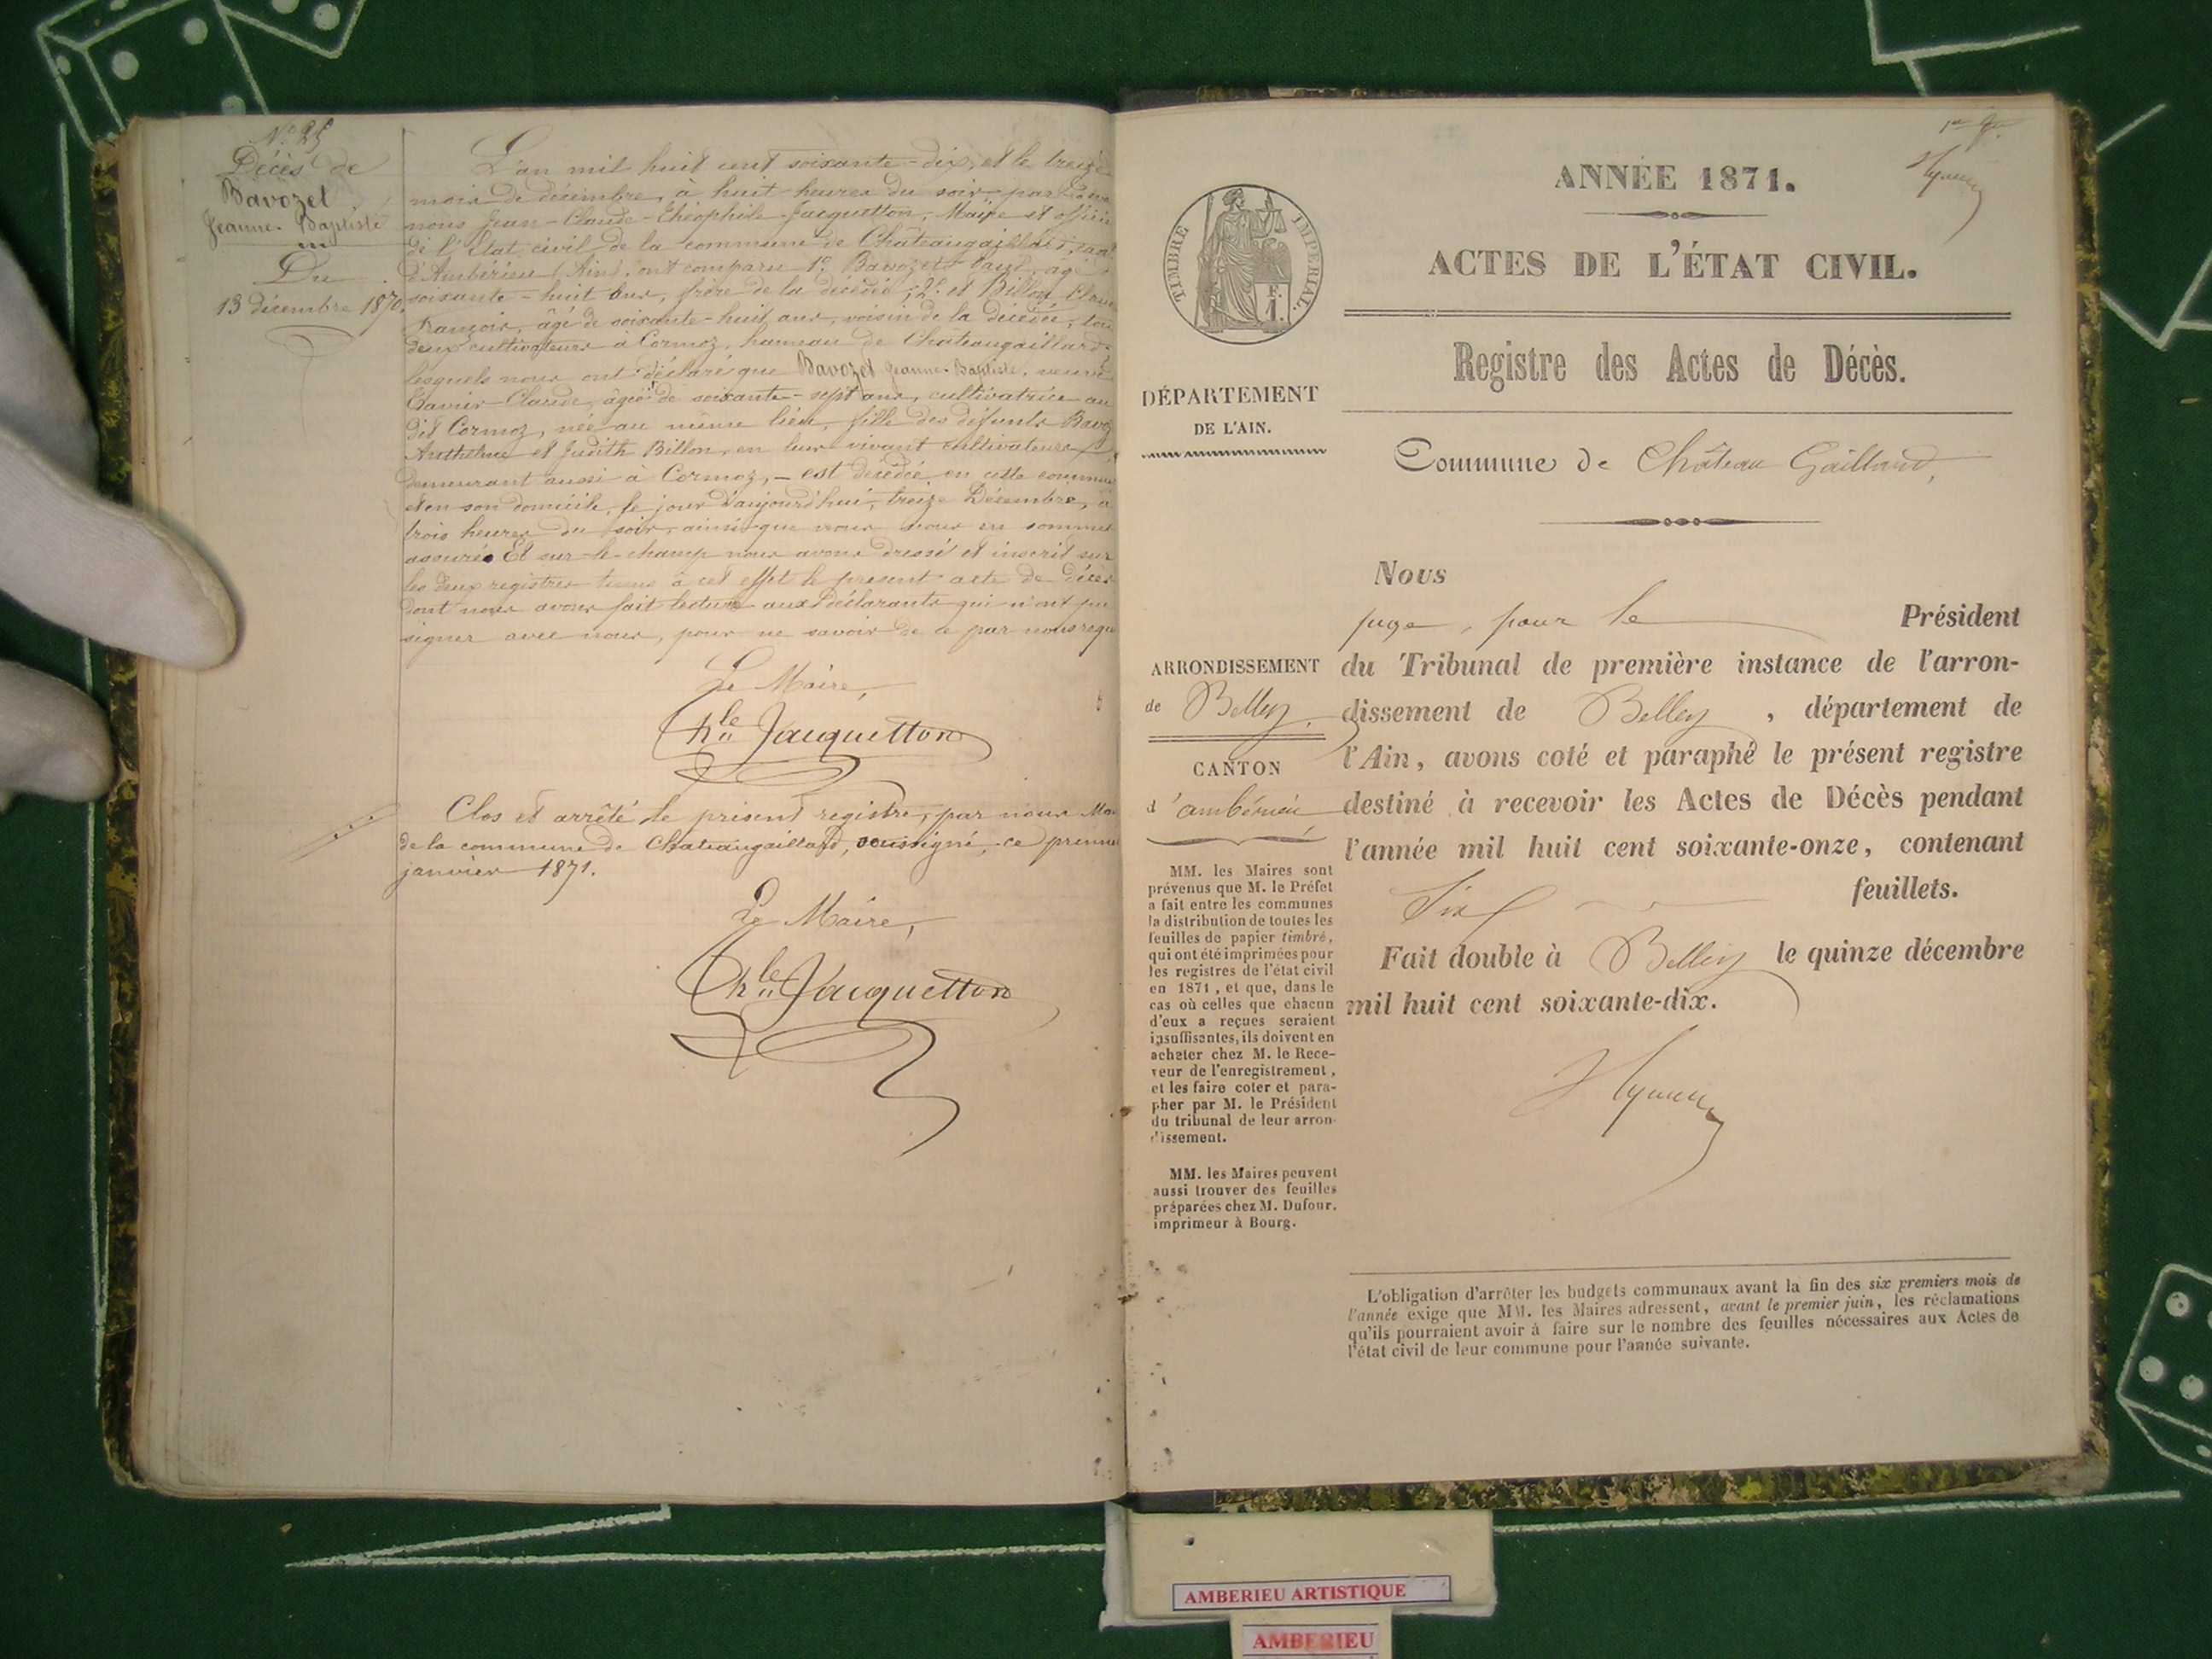 N° 25
Décès de
Bavozet
Jeanne-Baptiste
Du
13 décembre 1870.
L'an mil huit cent soixante-dix, et le treize
mois de décembre, à huit heures du soir, par
nous Jean-Claude-Théophile Jacquetton, Maire et officier
de l'État civil de la commune de Châteaugaillard,
d'Ambérieu (Ain), ont comparu 1° Bavozet âgé
soixante-huit ans, frère de la décédée; 2° et Billon
François, âgé de soixante-huit ans, voisin de la décédée, tous
deux cultivateurs à Cormoz, hameau de Châteaugaillard
lesquels nous ont déclaré que Bavozet Jeanne-Baptiste, veuve
Claude, âgée de soixante-sept ans, cultivatrice au
dit Cormoz, née au même lieu, fille des défunts
Anthelme et Judith Billon, en leur vivant cultivateurs
demeurant aussi à Cormoz, – est décédée en cette commune
et en son domicile, le jour d'aujourd'hui, treize Décembre, à
trois heures du soir, ainsi que nous nous en sommes
assuré. Et sur-le-champ nous avons dressé et inscrit sur
les deux registres tenus à cet effet le présent acte de décès
dont nous avons fait lecture aux déclarants qui n'ont pu
signer avec nous, pour ne savoir de ce par nous
Le Maire,
Jacquetton
Clos et arrêté le présent registre, par nous
de la commune de Chateaugaillard, soussigné, ce premier
janvier 1871.
Le Maire,
Jacquetton
ANNÉE 1871.
ACTES DE L'ÉTAT CIVIL.
TIMBRE IMPÉRIAL.
F. 1.
Registre des Actes de Décès.
DÉPARTEMENT
DE L'AIN.
Commune de Château Gaillard,
Nous
juge, pour le Président
ARRONDISSEMENT
de Belley.
CANTON
d'ambérieu
du Tribunal de première instance de l'arron-
dissement de Belley, département de
l'Ain, avons coté et paraphé le présent registre
destiné à recevoir les Actes de Décès pendant
l'année mil huit cent soixante-onze, contenant
Six feuillets.
Fait double à Belley le quinze décembre
mil huit cent soixante-dix.
MM. les Maires sont
prévenus que M. le Préfet
a fait entre les communes
la distribution de toutes les
feuilles de papier timbré,
qui ont été imprimées pour
les registres de l'état civil
en 1871, et que, dans le
cas où celles que chacun
d'eux a reçues seraient
insuffisantes, ils doivent en
acheter chez M. le Rece-
veur de l'enregistrement,
et les faire coter et para-
pher par M. le Président
du tribunal de leur arron-
dissement.
MM. les Maires peuvent
aussi trouver des feuilles
préparées chez M. Dufour,
imprimeur à Bourg.
L'obligation d'arrêter les budgets communaux avant la fin des six premiers mois de
l'année exige que MM. les Maires adressent, avant le premier juin, les réclamations
qu'ils pourraient avoir à faire sur le nombre des feuilles nécessaires aux Actes de
l'état civil de leur commune pour l'année suivante.
AMBERIEU ARTISTIQUE
AMBERIEU